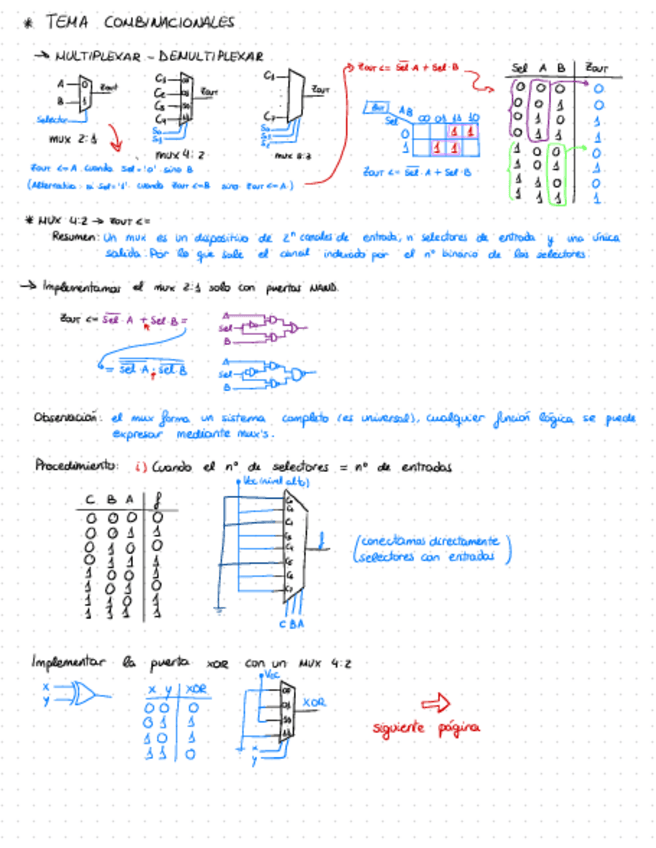 * TEMA COMBINACIONALES
→ MULTIPLEXAR - DEMULTIPLEXAR
A 0
B 1
Zout
Selector
mux 2:1
Zout
mux 4:2
Zout
mux 8:3
Zout <= A cuando Sel='0' sino B
(Alternativo: si Sel='1' cuando Zout <= B sino Zout <= A)
Zout <= Sel·A + Sel·B
AB
Sel 00 01 11 10
0 1 1
1 1 1
Zout <= Sel·A + Sel·B
Sel A B Zout
* MUX 4:2 → Zout <=
Resumen: Un mux es un dispositivo de 2ⁿ canales de entrada, n selectores de entrada y una única
salida. Por lo que sale el canal indexado por el nº binario de los selectores.
→ Implementamos el mux 2:1 solo con puertas NAND.
Zout <= Sel·A + Sel·B =
A
Sel
B
= Sel·A · Sel·B
A
Sel
B
Observación: el mux forma un sistema completo (es universal), cualquier función lógica se puede
expresar mediante mux's.
Procedimiento: i) Cuando el nº de selectores = nº de entradas
Vcc (nivel alto)
C B A f
0 0 0 0
0 0 1 1
0 1 0 0
0 1 1 1
f
(conectamos directamente
selectores con entradas)
C B A
Implementar la puerta XOR con un MUX 4:2
x
y
x y XOR
0 0 0
0 1 1
1 0 1
1 1 0
Vcc
XOR
x
y
⇒
siguiente página